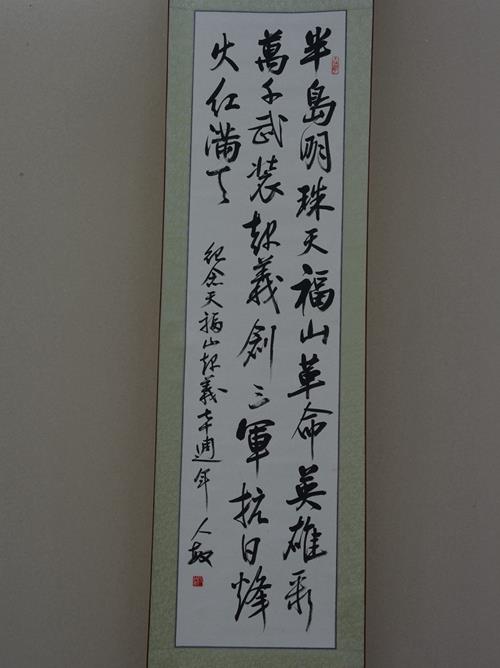 半島明珠天福山革命英雄
萬千武裝起義創三軍抗日烽
火红滿天
紀念天福山起義七十週年
人